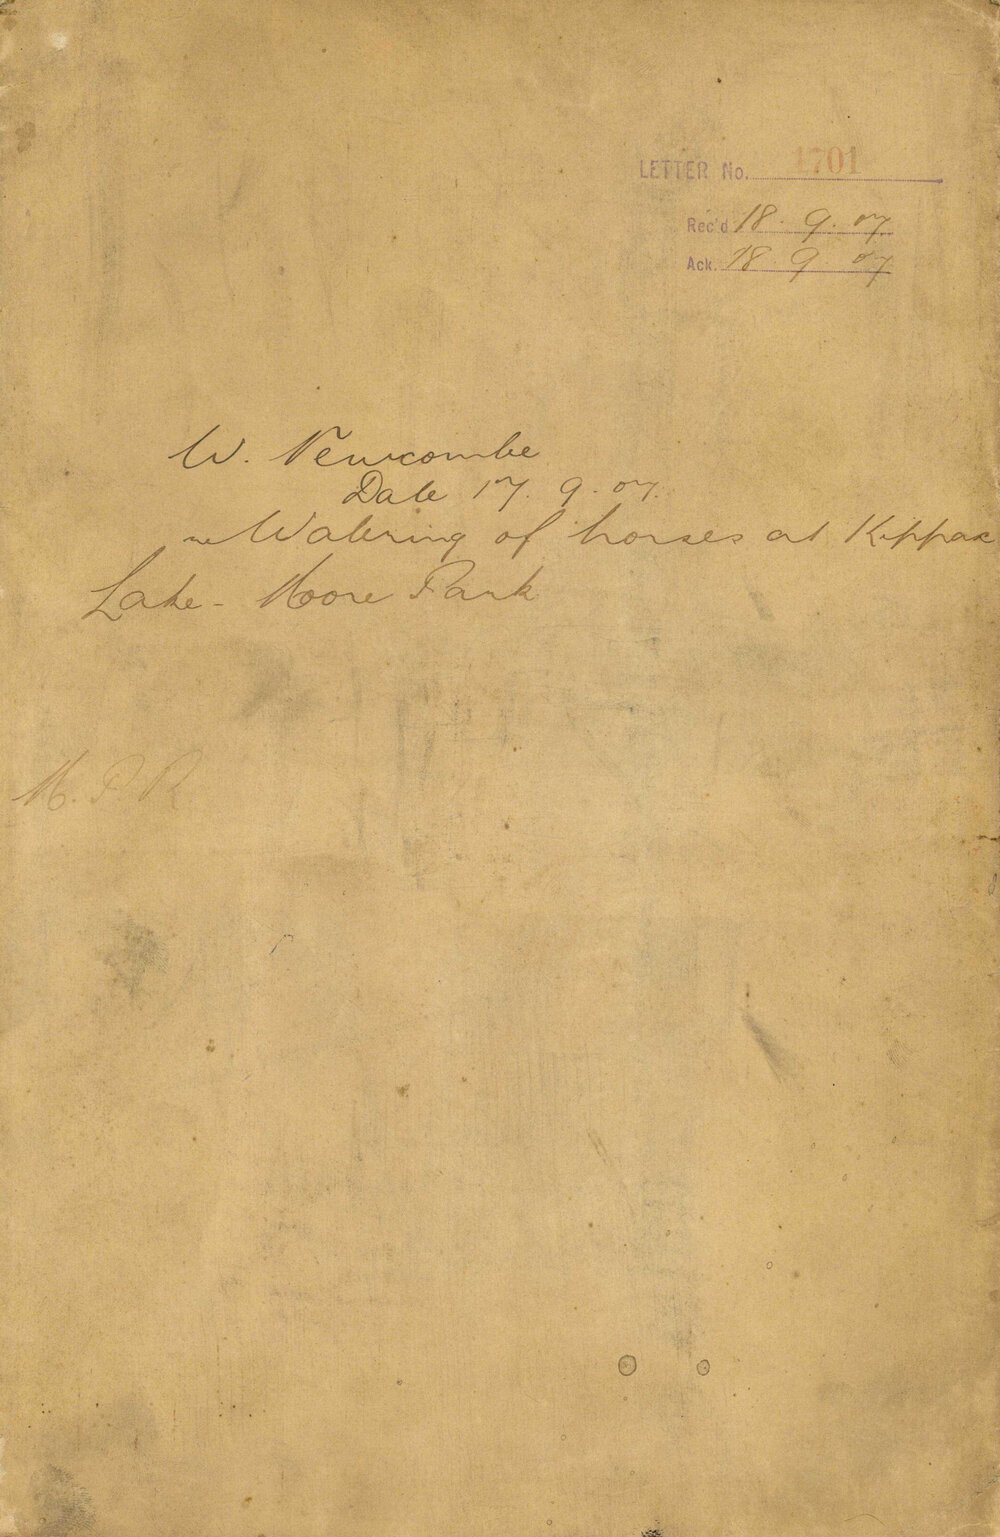 LETTER No. 1701
Rec'd 18. 9. 07
Ack. 18 9 07
W. Newcombe
Date 17. 9. 07.
re Watering of horses at Kippax
Lake - Moore Park
M. P. R